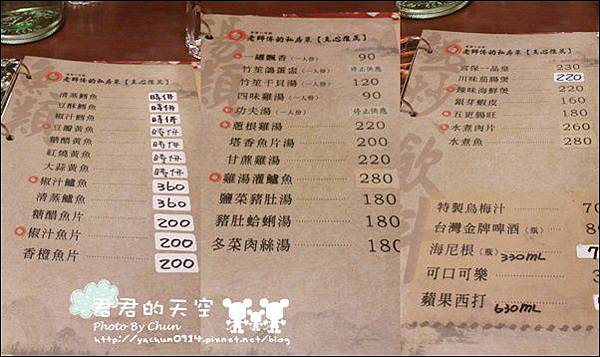 老師傅的私房菜【主心推薦】
清蒸鱈魚 時價
豆酥鱈魚 時價
椒汁鱈魚 時價
豆瓣黃魚 時價
糖醋黃魚 時價
紅燒黃魚 時價
大蒜黃魚 時價
椒汁鱸魚 360
清蒸鱸魚 360
糖醋魚片 200
椒汁魚片 200
香橙魚片 200
湯類
老師傅的私房菜【主心推薦】
一罐飄香(一人份) 90
竹笙鴿蛋盅(一人份) 停止供應
竹笙干貝湯(一人份) 120
四味雞湯(一人份) 90
功夫湯(一人份) 停止供應
蒽根雞湯 220
塔香魚片湯 220
甘蔗雞湯 220
雞湯濯鱸魚 280
鹽菜豬肚湯 180
豬肚蛤蜊湯 180
冬菜肉絲湯 180
老師傅的私房菜【主心推薦】
宮保一品皇 230
川味茄腸煲 220
辣味海鮮煲 260
銀芽蝦皮 160
五更腸旺 180
水煮肉片 260
水煮魚 280
飲料
特製烏梅汁
台灣金牌啤酒(瓶)
海尼根(瓶) 330mL
可口可樂
蘋果西打 630mL
君君的天空
Photo By Chun
http://yachun0914.pixnet.net/blog